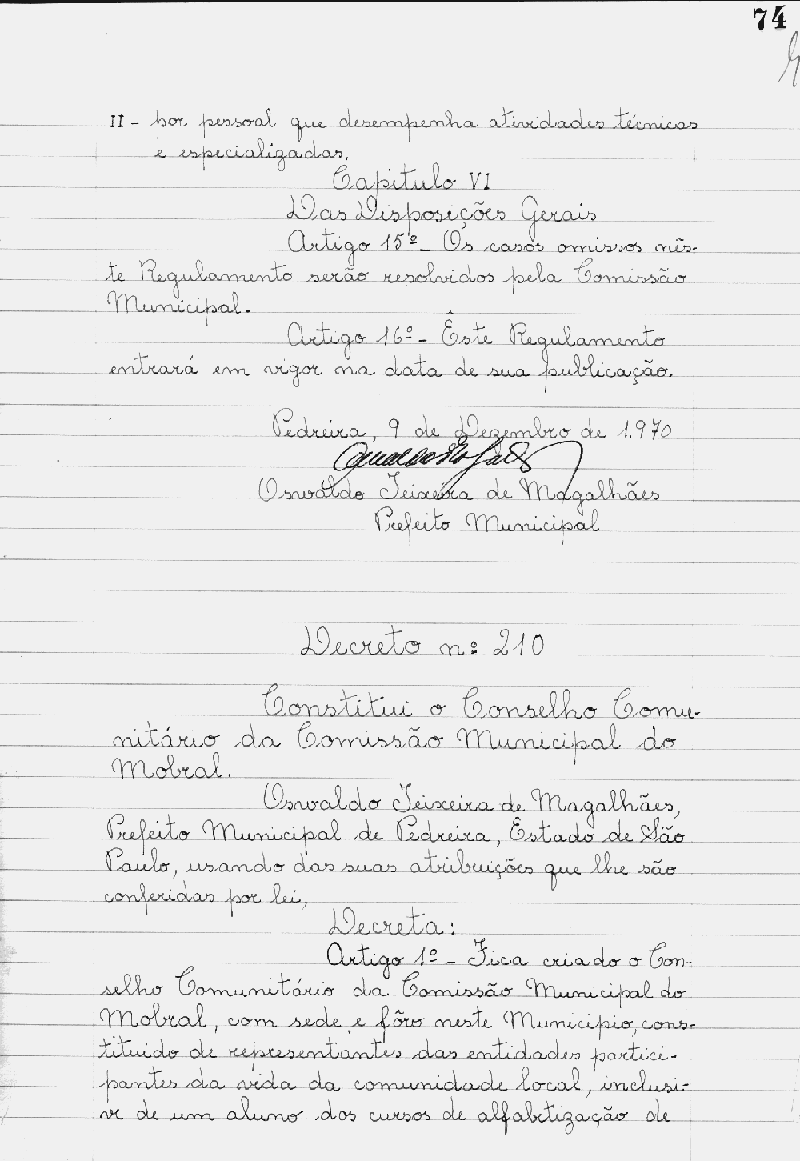 74
II - por pessoal que desempenha atividades técnicas
e especializadas.
Capitulo VI
Das Disposições Gerais
Artigo 15º - Os casos omissos nês-
te Regulamento serão resolvidos pela Comissão
Municipal.
Artigo 16º - Êste Regulamento
entrará em vigor na data de sua publicação.
Pedreira, 9 de Dezembro de 1.970
Osvaldo Teixeira de Magalhães
Prefeito Municipal
Decreto nº 210
Constitui o Conselho Comu-
nitário da Comissão Municipal do
Mobral.
Osvaldo Teixeira de Magalhães,
Prefeito Municipal de Pedreira, Estado de São
Paulo, usando das suas atribuições que lhe são
conferidas por lei,
Decreta:
Artigo 1º - Fica criado o Con-
selho Comunitário da Comissão Municipal do
Mobral, com sede e fôro neste Municipio, cons-
tituido de representantes das entidades partici-
pantes da vida da comunidade local, inclusi-
ve de um aluno dos cursos de alfabetização de